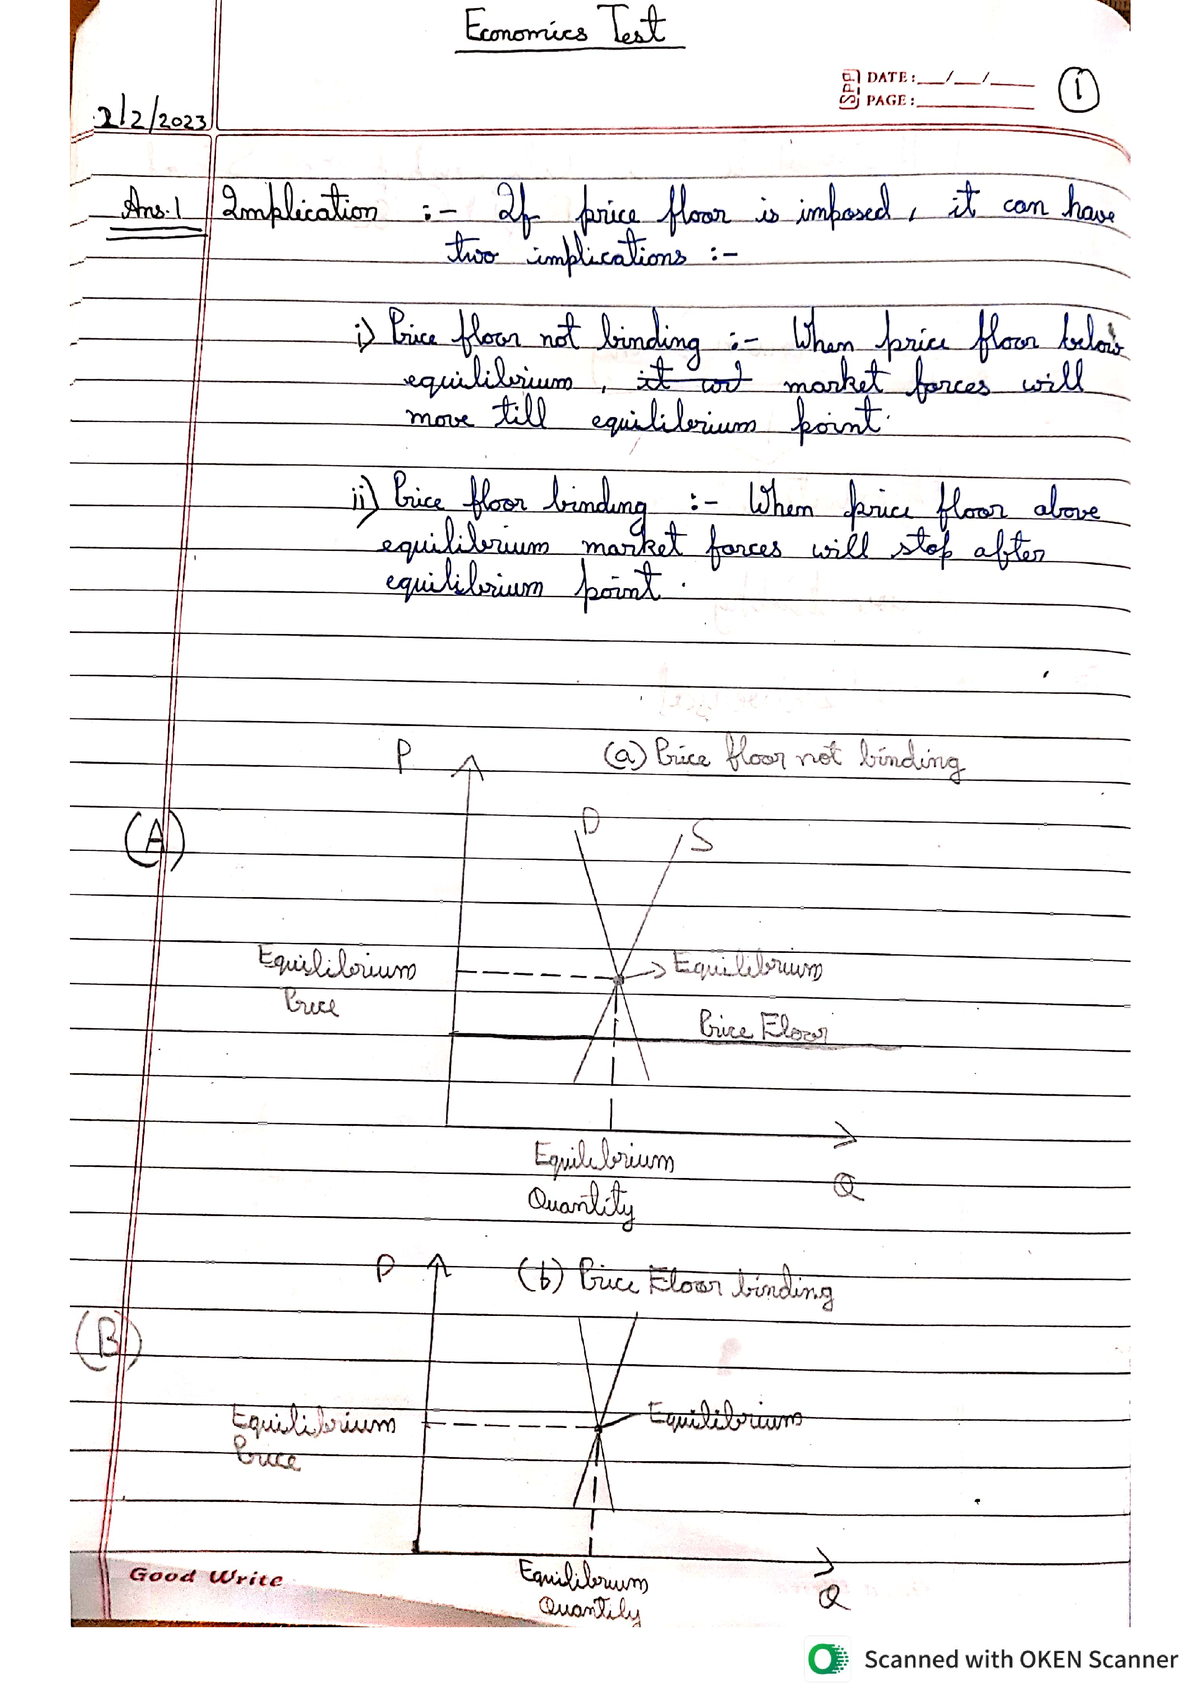 Economics Test
SPD DATE: __/__/__
PAGE: 1
2/2/2023
Ans.1 Implication :- If price floor is imposed, it can have
two implications :-
i) Price floor not binding :- When price floor below
equilibrium, it wot market forces will
move till equilibrium point.
ii) Price floor binding :- When price floor above
equilibrium market forces will stop after
equilibrium point.
P (a) Price floor not binding
(A)
D S
Equilibrium
Price
Equilibrium
Price Floor
Equilibrium
Quantity
Q
P (b) Price Floor binding
(B)
Equilibrium
Price
Equilibrium
Good Write
Equilibrium
Quantity
Q
Scanned with OKEN Scanner